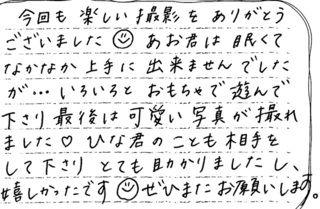 今回も 楽しい 撮影を ありがとう
ございました☺ あお君は 眠くて
なかなか 上手に 出来ませんでした
が… いろいろと おもちゃで 遊んで
下さり 最後は 可愛い 写真が 撮れ
ました♡ ひな君の ことも 相手を
して 下さり とても 助かりましたし、
嬉しかったです☺ ぜひまた お願いします。